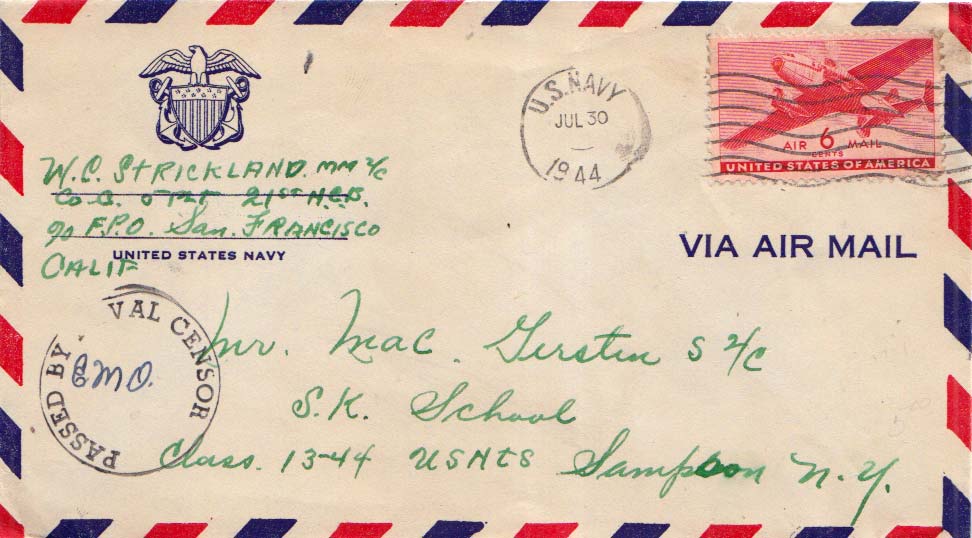 W.C. STRICKLAND MM 2/C
Co B. 5 PLT 21ST N.C.B.
c/o F.P.O. San. FRANCISCO
UNITED STATES NAVY
CALIF
U.S. NAVY
JUL 30
1944
AIR 6 MAIL
CENTS
UNITED STATES OF AMERICA
VIA AIR MAIL
PASSED BY VAL CENSOR
Mr. Mac. Gersten S 2/C
S.K. School
Class. 13-44 USNTS Sampson N.Y.